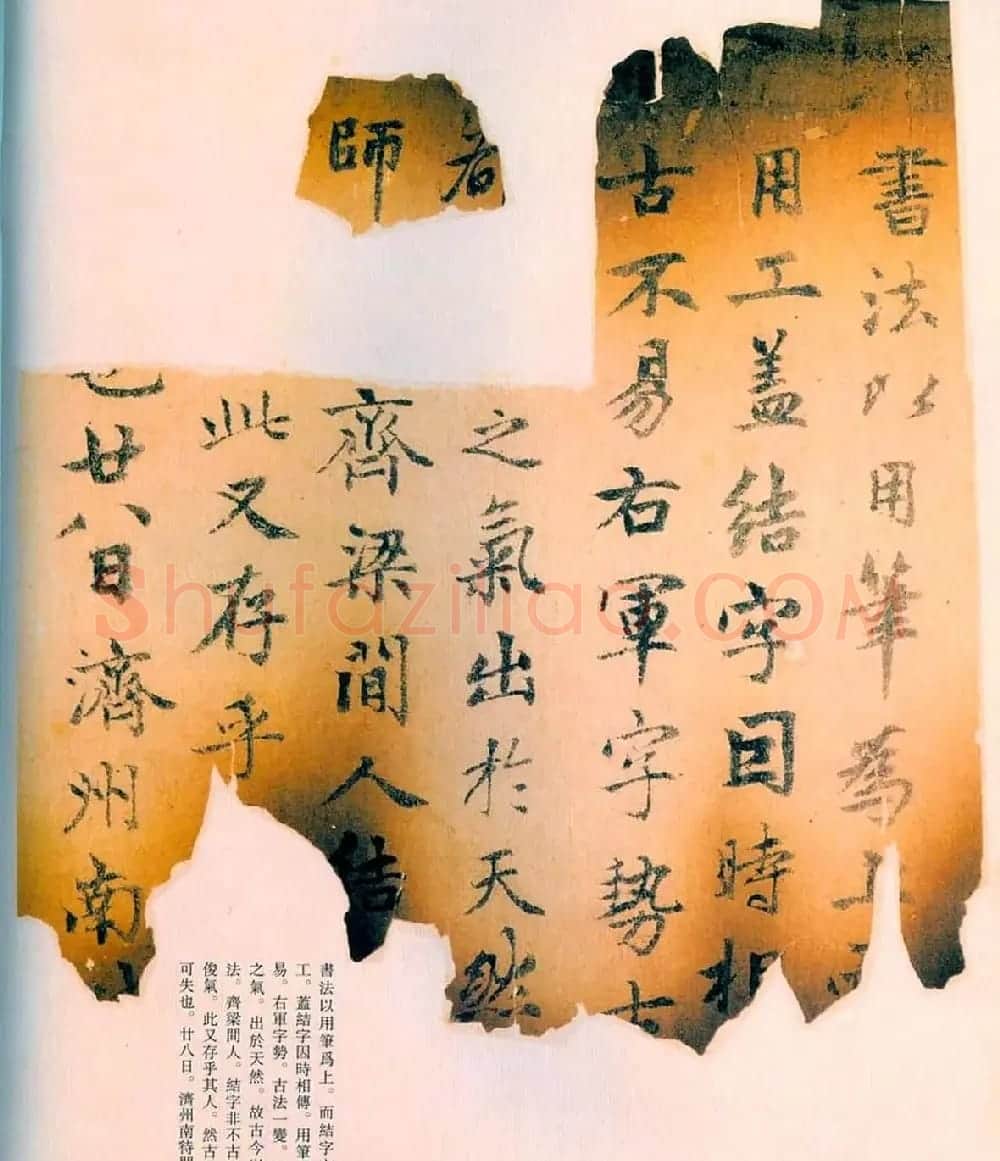 書法以用筆為上而
用工蓋結字因時相
古不易右軍字勢古
者
之氣出於天然
師
齊梁間人結
此又存乎
也廿八日濟州南
書法以用筆爲上。而結字
工。蓋結字因時相傳。用筆
易。右軍字勢。古法一變。
之氣。出於天然。故古今
法。齊梁間人。結字非不古
俊氣。此又存乎其人。然古
可失也。廿八日。濟州南待
Shufaziliao.COM